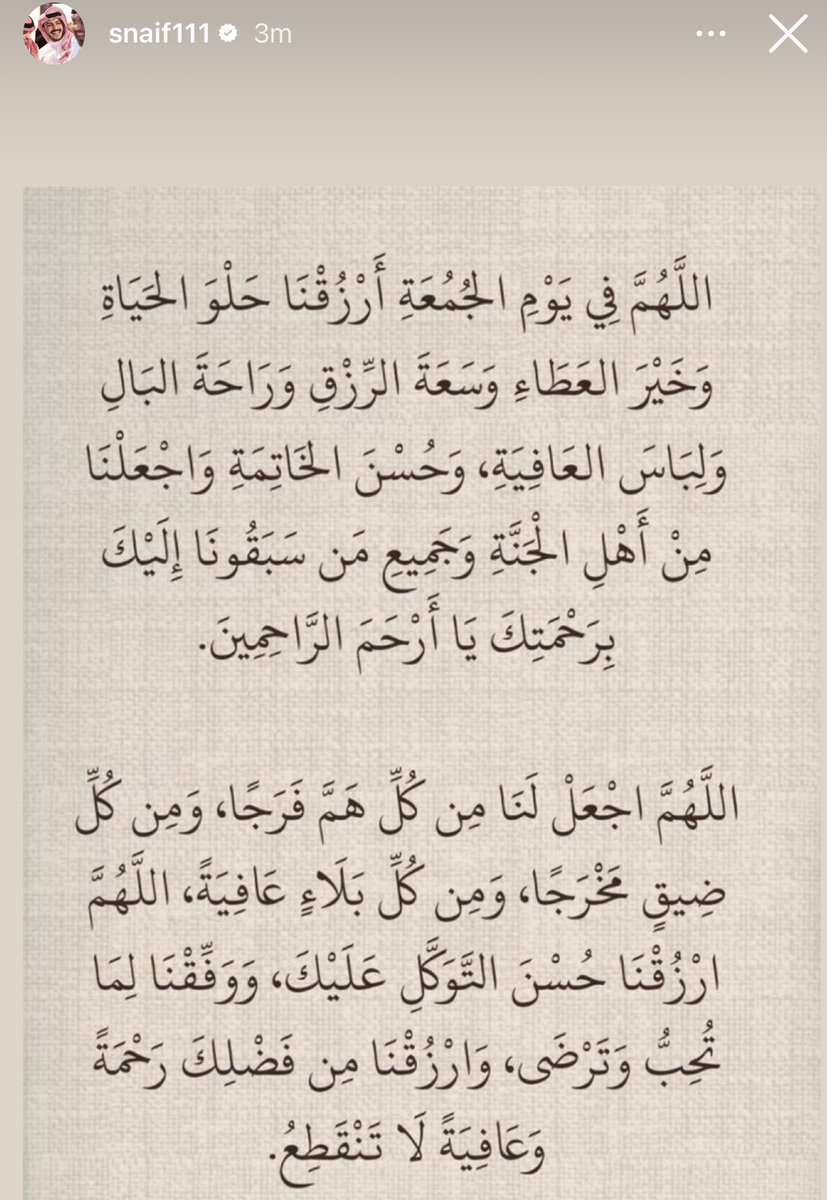 snaif111 3m
اللَّهُمَّ فِي يَوْمِ الْجُمُعَةِ أَرْزُقْنَا حَلْوَ الحَيَاةِ
وَخَيْرَ العَطَاءِ وَسَعَةَ الرِّزْقِ وَرَاحَةَ البَالِ
وَلِبَاسَ العَافِيَةِ، وَحُسْنَ الخَاتِمَةِ وَاجْعَلْنَا
مِنْ أَهْلِ الْجَنَّةِ وَجَمِيعِ مَن سَبَقُونَا إِلَيْكَ
بِرَحْمَتِكَ يَا أَرْحَمَ الرَّاحِمِينَ.
اللَّهُمَّ اجْعَلْ لَنَا مِن كُلِّ هَمَّ فَرَجًا، وَمِن كُلِّ
ضِيقٍ مَخْرَجًا، وَمِن كُلِّ بَلَاءٍ عَافِيَةً، اللَّهُمَّ
ارْزُقْنَا حُسْنَ التَّوَكَّلِ عَلَيْكَ، وَوَفِّقْنَا لِمَا
تُحِبُّ وَتَرْضَى، وَارْزُقْنَا مِن فَضْلِكَ رَحْمَةً
وَعَافِيَةً لَا تَنْقَطِعُ.